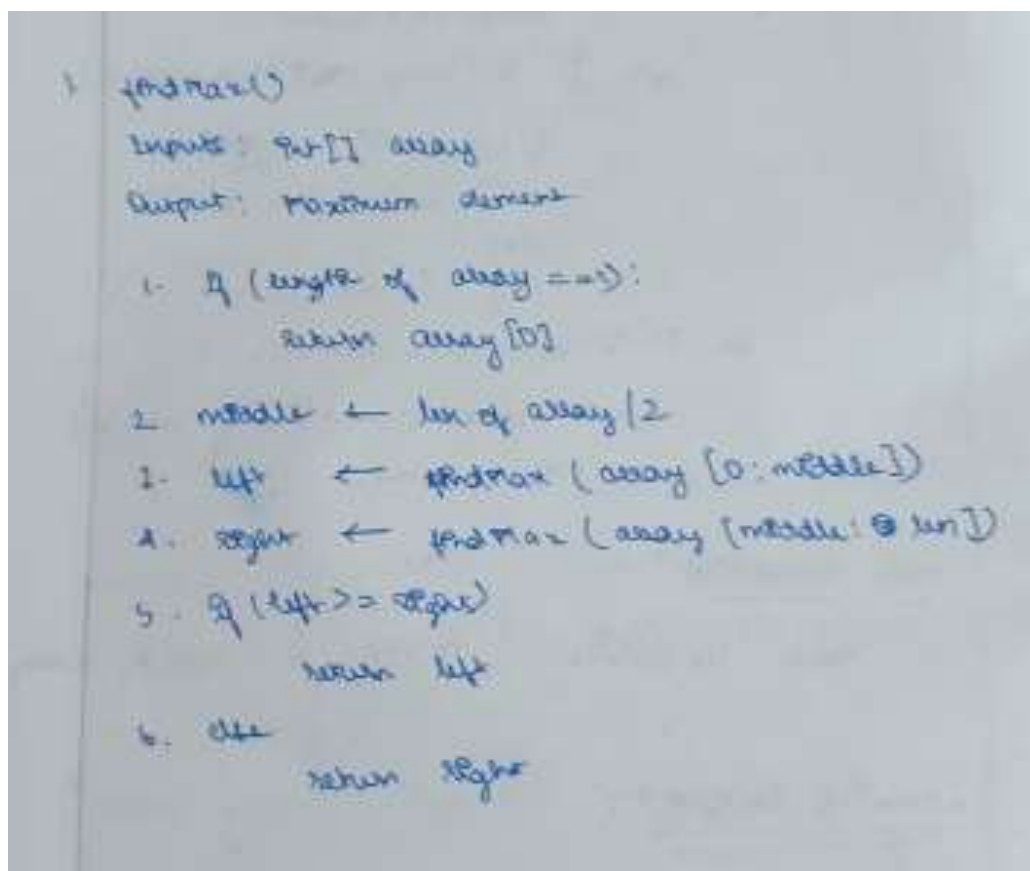 1 findMax()
Inputs: int[] array
Output: Maximum element
1. If (length of array ==1):
return array[0]
2. middle ← len of array/2
3. left ← findMax (array [0: middle])
4. right ← findMax (array [middle: len])
5. If (left >= right)
return left
6. else
return right